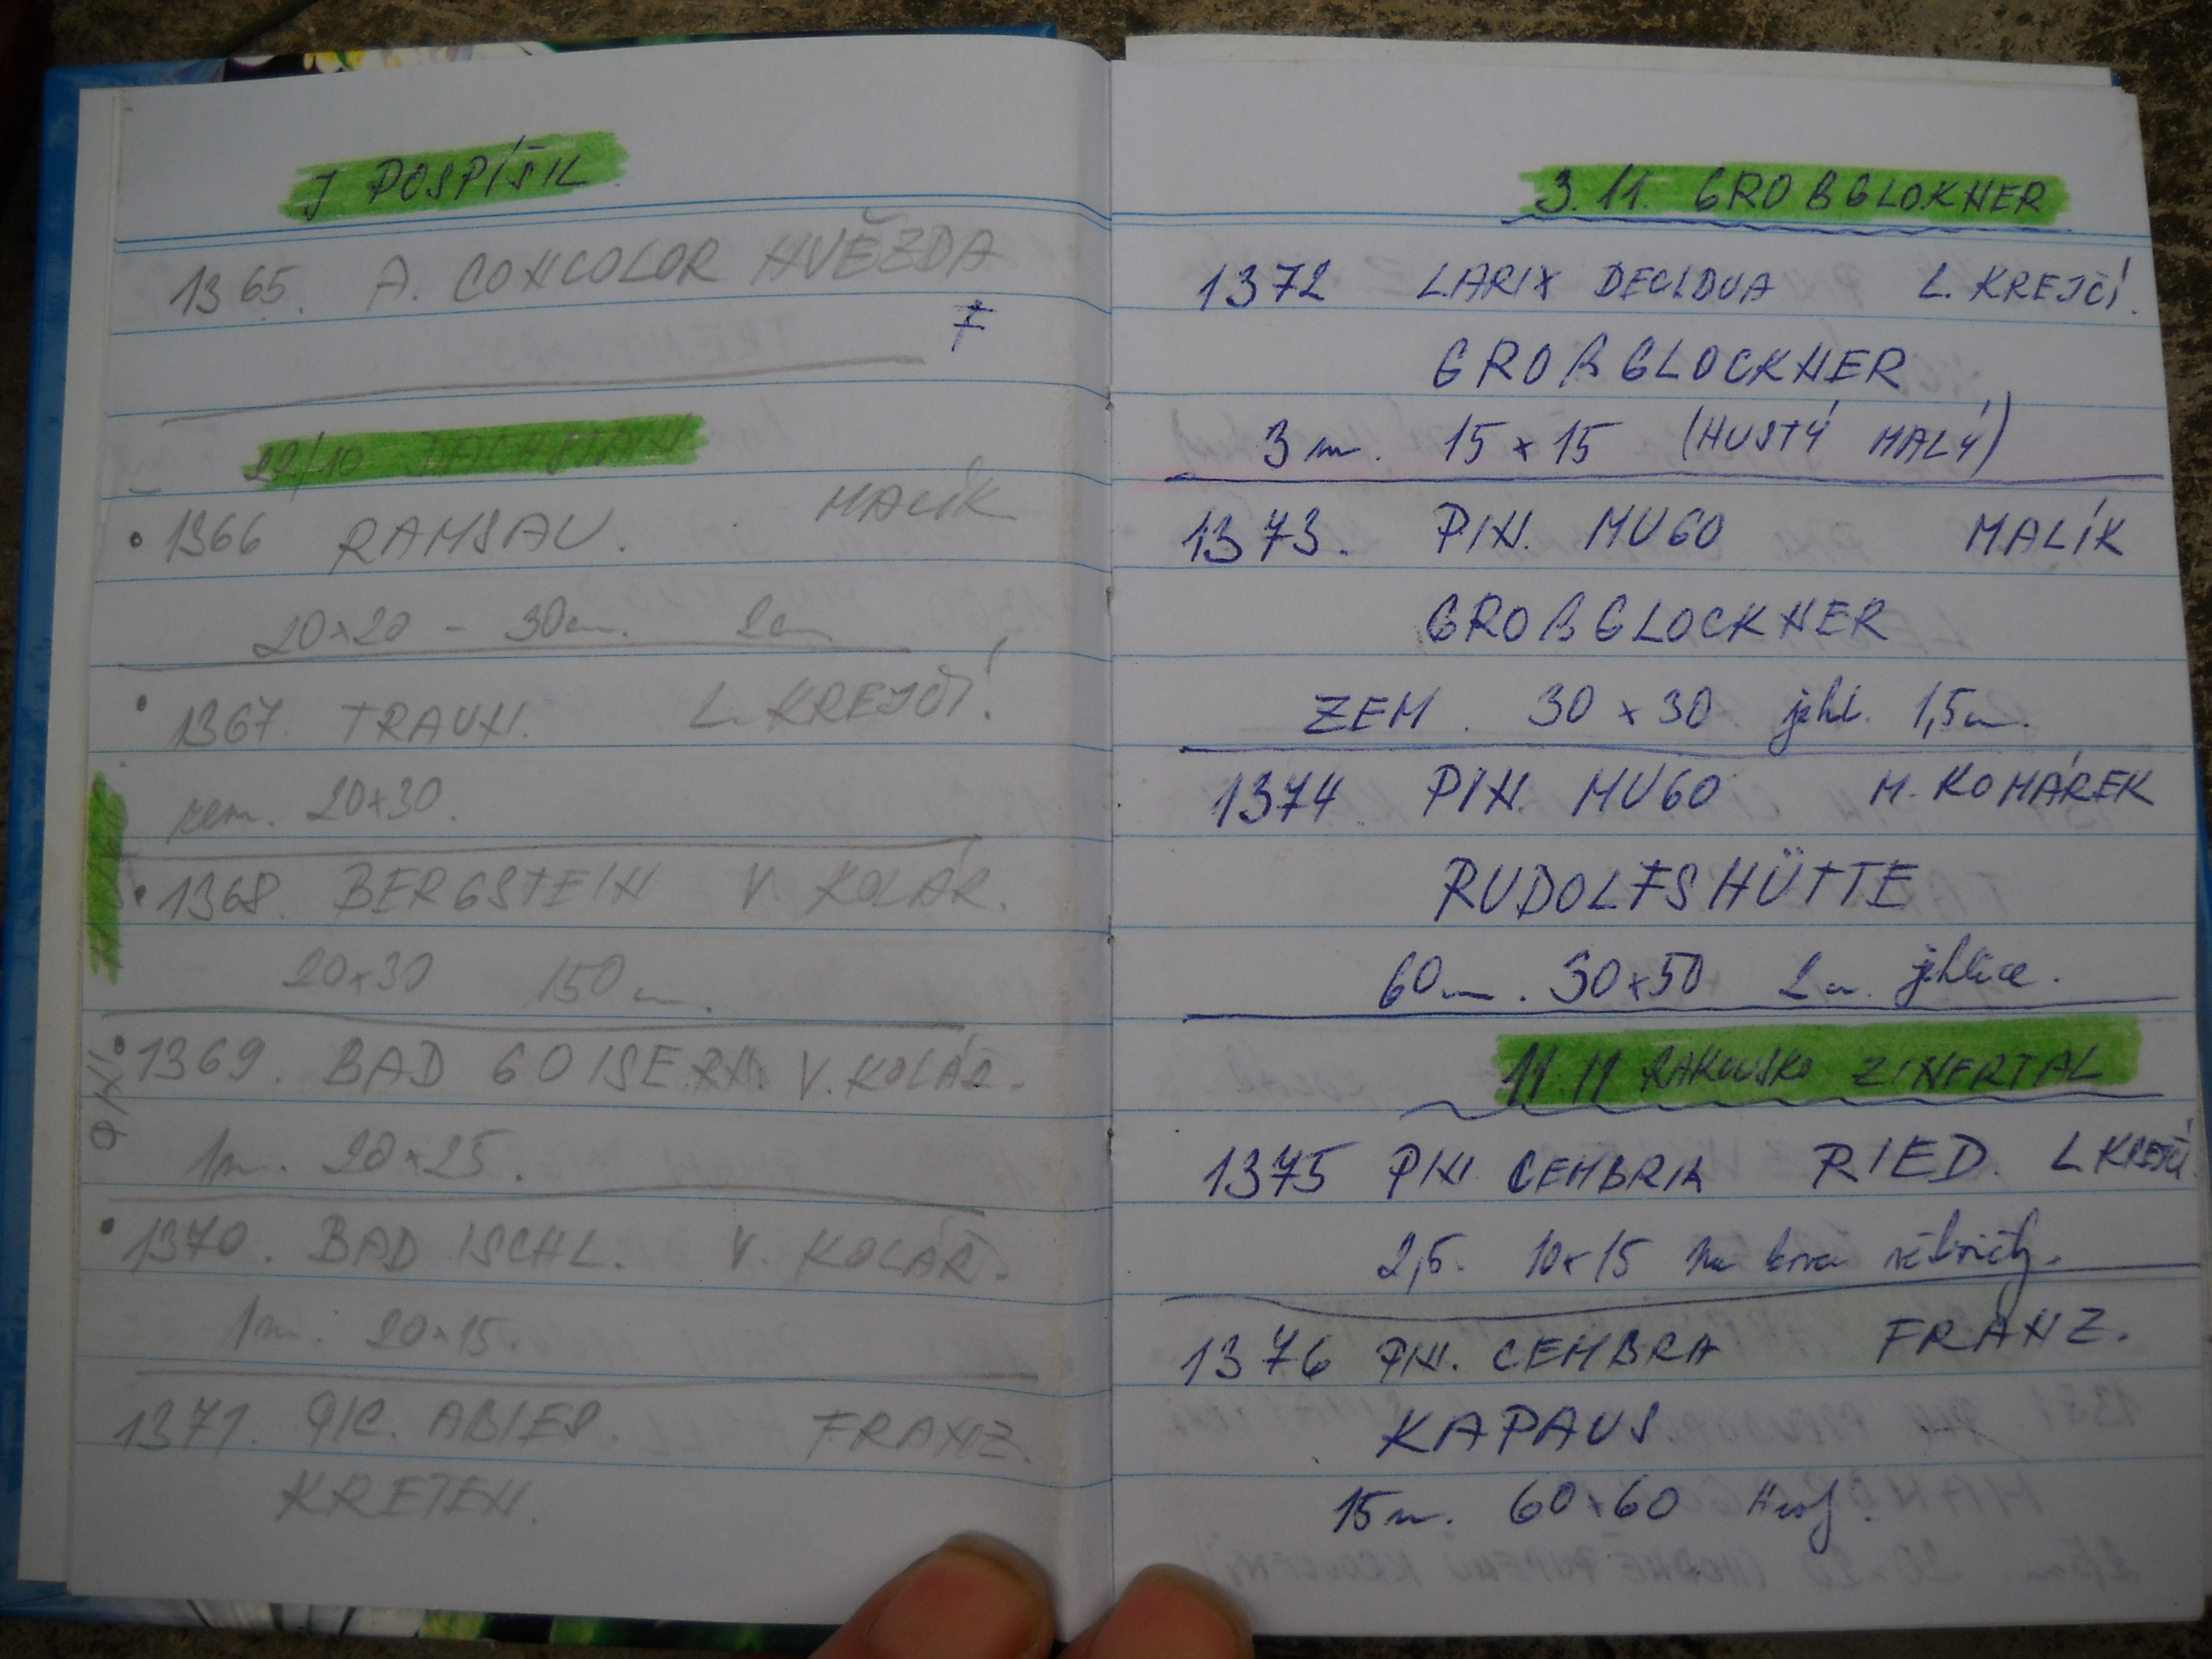 J POSPÍŠIL
1365. A. CONCOLOR HVĚZDA
F
22/10 DACHSTAIN
1366 RAMSAU. MALÍK
20x20 - 30cm. 2cm
1367. TRAUN. L. KREJČÍ.
zem. 20x30.
1368. BERGSTEIN V. KOLÁŘ.
20x30 150cm.
1369. BAD GOISERN. V. KOLÁŘ.
1m. 20x25.
1370. BAD ISCHL. V. KOLÁŘ.
1m. 20x15.
1371. PIC. ABIES. FRANZ.
KRETEN.
3.11. GROßGLOKNER
1372 LARIX DECIDUA L. KREJČÍ.
GROßGLOCKNER
3m. 15x15 (HUSTÝ MALÝ)
1373. PIN. MUGO MALÍK
GROßGLOCKNER
ZEM. 30x30 jehl. 1,5cm.
1374 PIN. MUGO M. KOMÁREK
RUDOLFSHÜTTE
60cm. 30x50 2cm. jehlice.
11.11 RAKOUSKO ZINERTAL
1375 PIN. CEMBRA RIED. L KREJČÍ
2,5. 10x15 na větvičky.
1376 PIN. CEMBRA FRANZ.
KAPAUS.
15m. 60x60